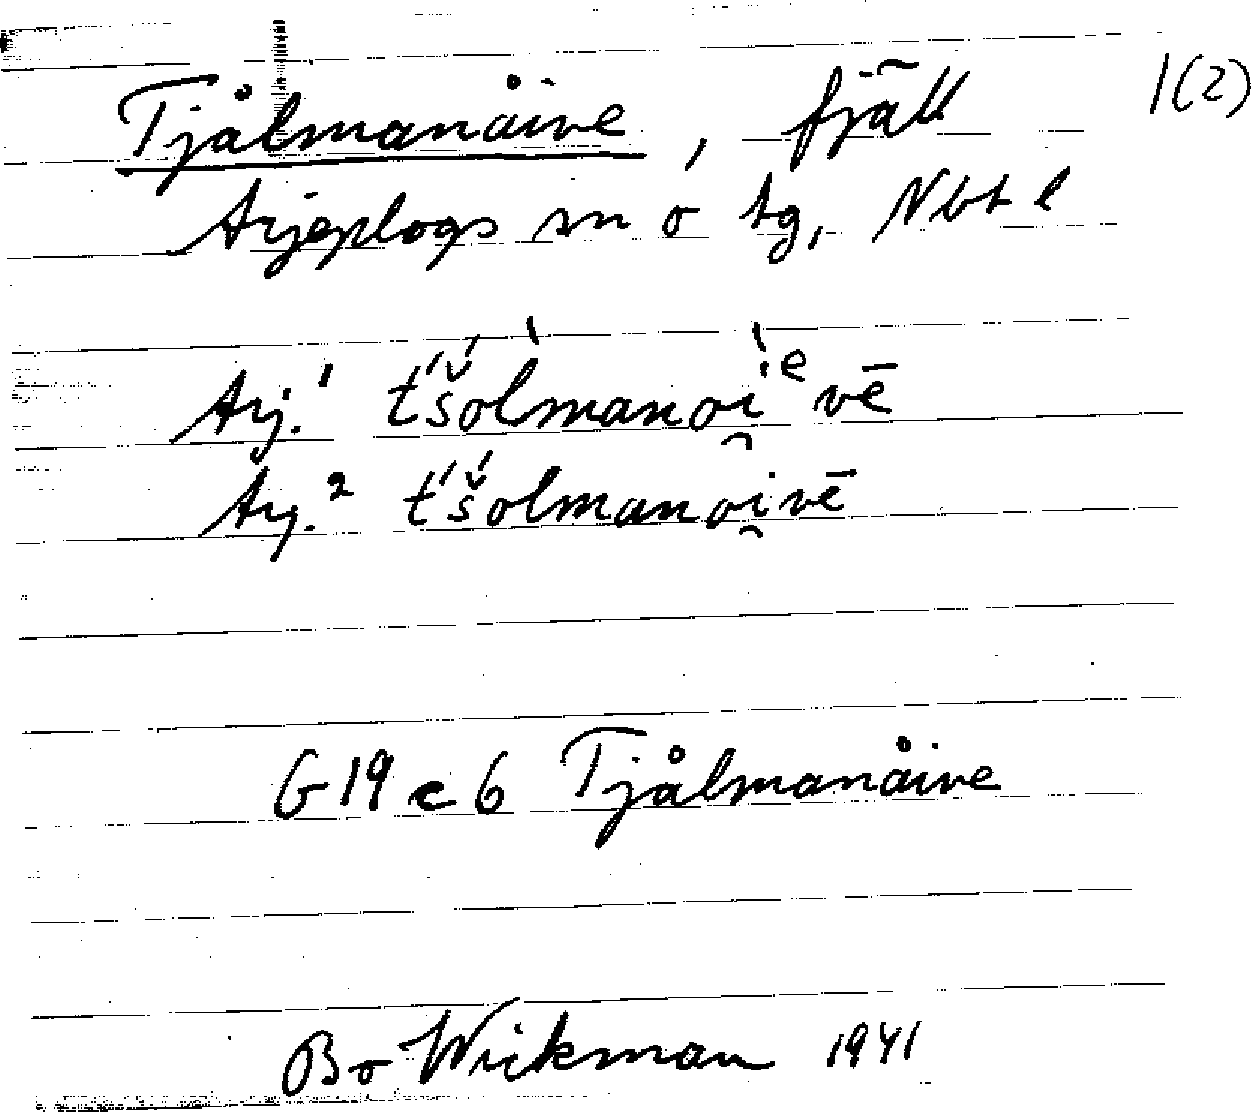 Tjålmanåive, fjäll 1(2)
Arjeplogs sn o tg, Nbt l
Arj.¹ t́š́olmanoi̯ᵉvē
Arj.² t́š́olmanoi̯vē
G 19 c 6 Tjålmanåive
Bo Wickman 1941